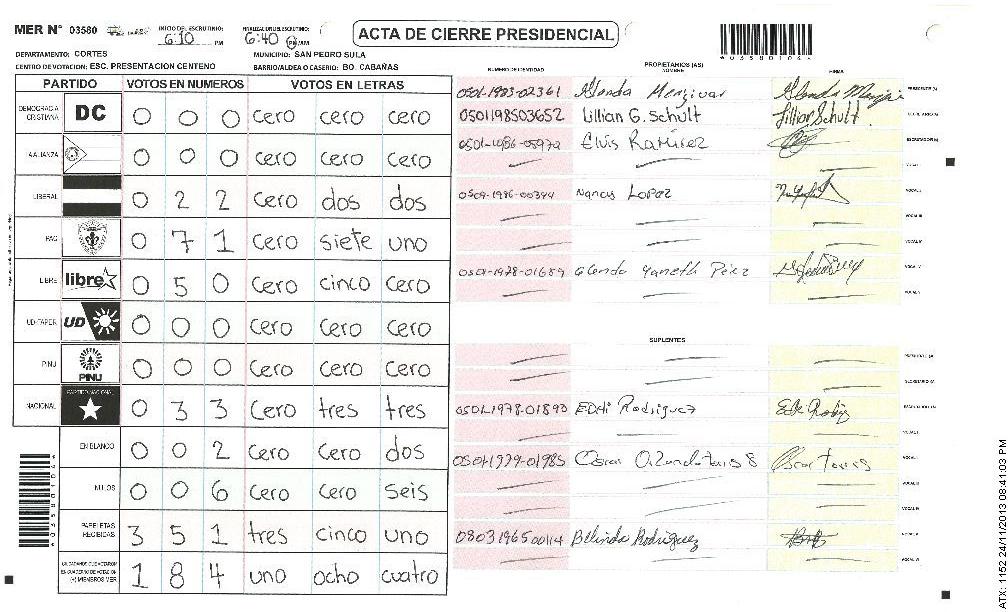 MER N° 03580 INICIO DEL ESCRUTINIO: 6:10 PM FINALIZACION DEL ESCRUTINIO: 6:40 PM/AM ACTA DE CIERRE PRESIDENCIAL
DEPARTAMENTO: CORTES MUNICIPIO: SAN PEDRO SULA
CENTRO DE VOTACION: ESC. PRESENTACION CENTENO BARRIO/ALDEA O CASERIO: BO. CABAÑAS
PARTIDO VOTOS EN NUMEROS VOTOS EN LETRAS
DEMOCRACIA CRISTIANA DC 0 0 0 cero cero cero
AALIANZA 0 0 0 cero cero cero
LIBERAL 0 2 2 cero dos dos
PAC 0 7 1 cero siete uno
LIBRE libre 0 5 0 cero cinco cero
UD-FAPER UD 0 0 0 cero cero cero
PINU PINU 0 0 0 cero cero cero
NACIONAL PARTIDO NACIONAL 0 3 3 cero tres tres
EN BLANCO 0 0 2 cero cero dos
NULOS 0 0 6 cero cero seis
PAPELETAS RECIBIDAS 3 5 1 tres cinco uno
CIUDADANOS QUE VOTARON EN CUADERNO DE VOTACION (+) MIEMBROS MER 1 8 4 uno ocho cuatro
NUMERO DE IDENTIDAD PROPIETARIOS (AS) NOMBRE FIRMA
0501-1983-02361 Glenda Menzivar Glenda PRESIDENTE (A)
0501198503652 Lillian G. Schult Lillian Schult SECRETARIO (A)
Elvis Ramirez ESCRUTADOR (A)
VOCAL I
Nancy Lopez VOCAL II
VOCAL III
VOCAL IV
0501-1978-01689 Glenda Yaneth Pérez VOCAL V
SUPLENTES
PRESIDENTE (A)
SECRETARIO (A)
0501-1978-01890 Rodriguez
VOCAL I
0501-1979-01985 Oscar Oscar Torres
VOCAL III
VOCAL IV
0803196500114 Belinda Rodriguez
VOCAL VI
*03580104*
*03580104*
ATX: 1152 24/11/2013 08:41:03 PM